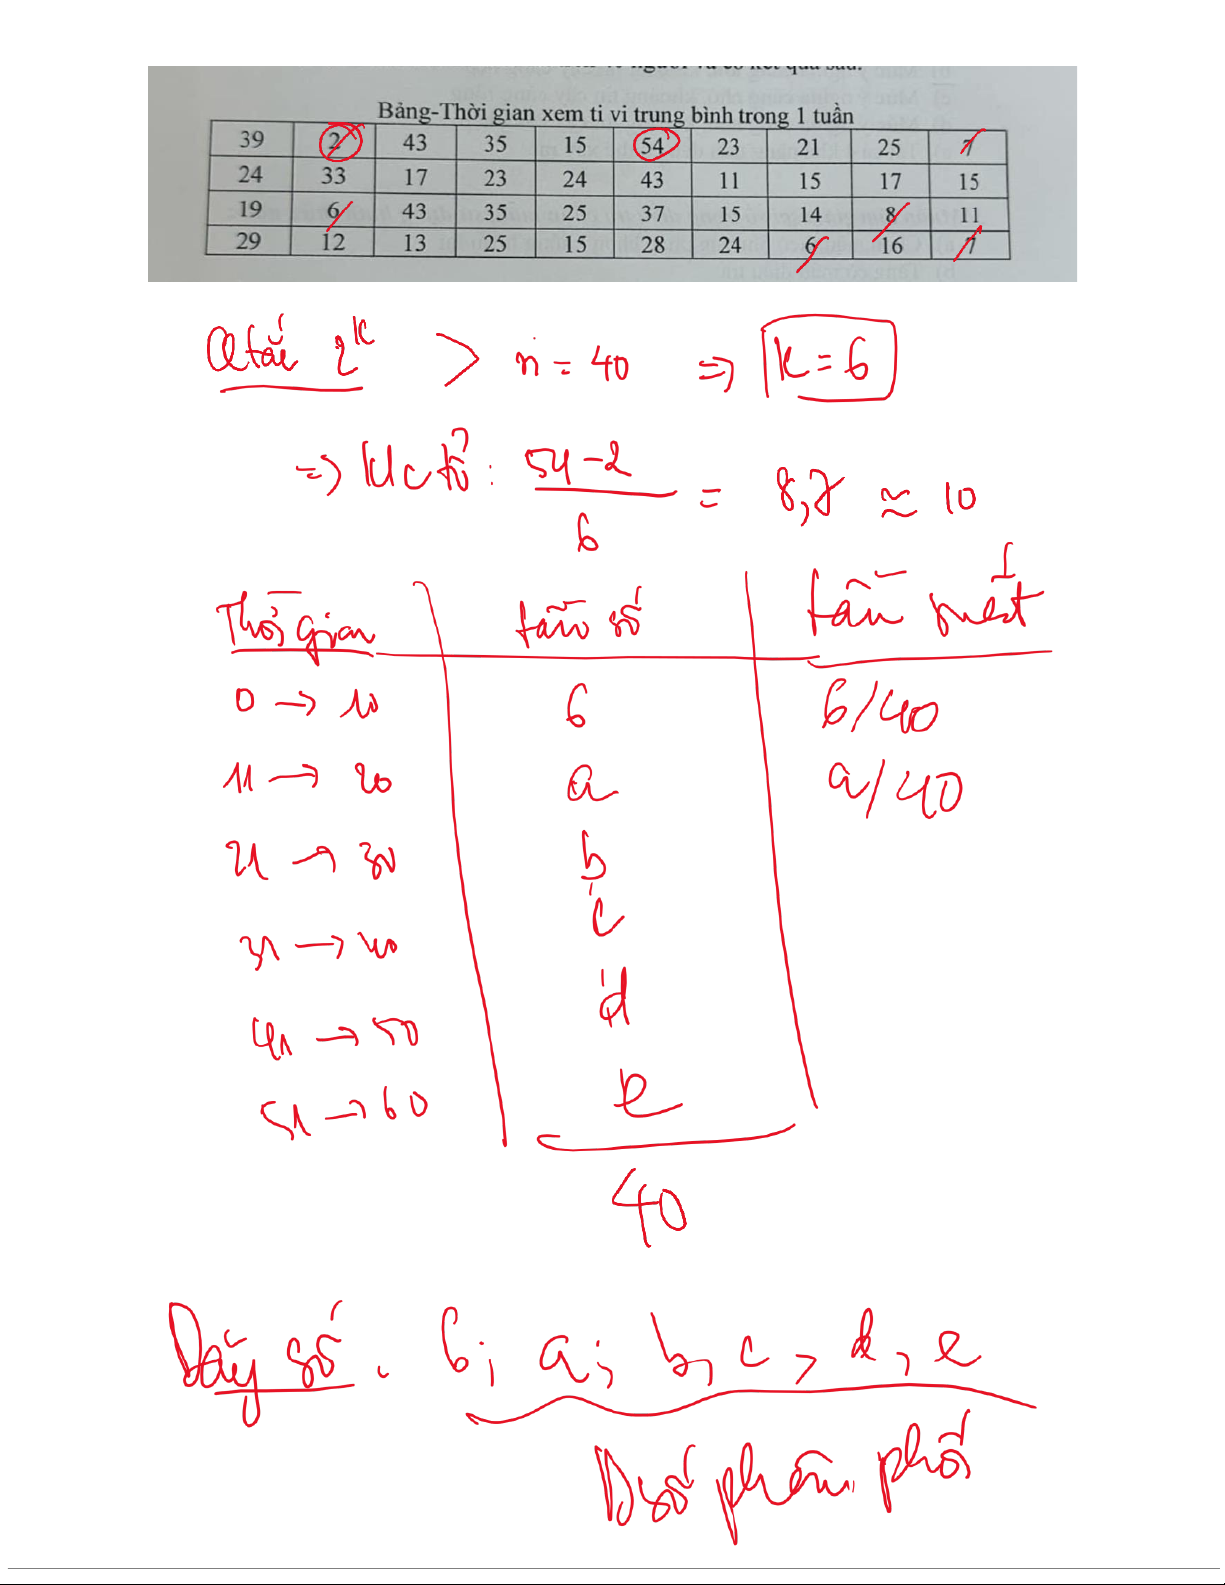 Bảng-Thời gian xem ti vi trung bình trong 1 tuần
39 2 43 35 15 54 23 21 25 7
24 33 17 23 24 43 11 15 17 15
19 6 43 35 25 37 15 14 8 11
29 12 13 25 15 28 24 6 16 7
Qtắc 2^k > n = 40 => k = 6
=> Klc tổ : 54 - 2 / 6 = 8,7 ≈ 10
Thời gian tần số tần suất
0 → 10 6 6/40
11 → 20 a a/40
21 → 30 b
31 → 40 c
41 → 50 d
51 → 60 e
40
Dãy số : 6; a; b, c, d, e
Dsố phân phối